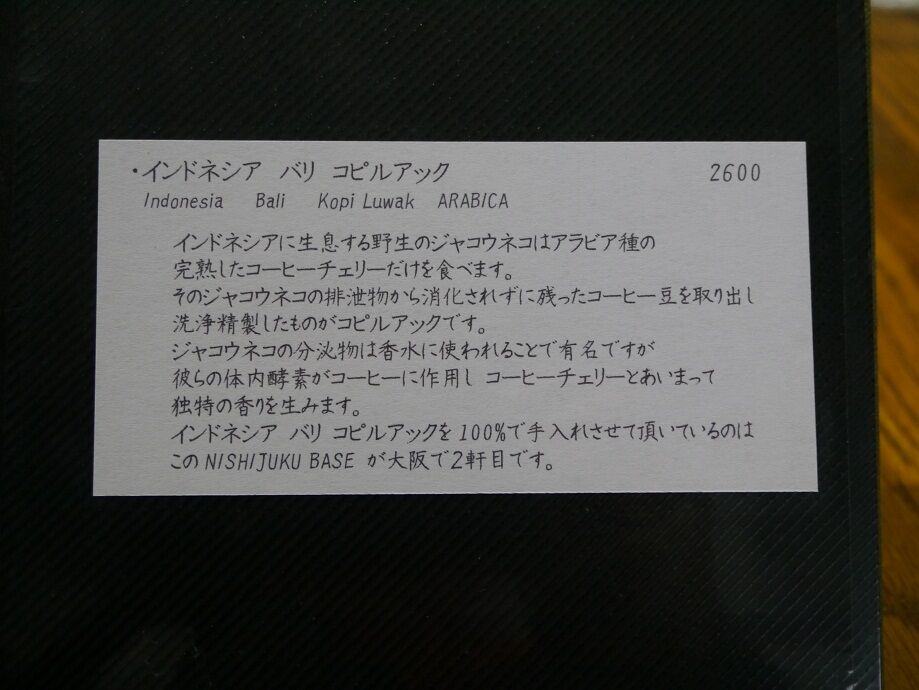 ・インドネシア バリ コピルアック 2600
Indonesia Bali Kopi Luwak ARABICA
インドネシアに生息する野生のジャコウネコはアラビア種の
完熟したコーヒーチェリーだけを食べます。
そのジャコウネコの排泄物から消化されずに残ったコーヒー豆を取り出し
洗浄精製したものがコピルアックです。
ジャコウネコの分泌物は香水に使われることで有名ですが
彼らの体内酵素がコーヒーに作用し コーヒーチェリーとあいまって
独特の香りを生みます。
インドネシア バリ コピルアックを100%で手入れさせて頂いているのは
このNISHIJUKU BASE が大阪で2軒目です。